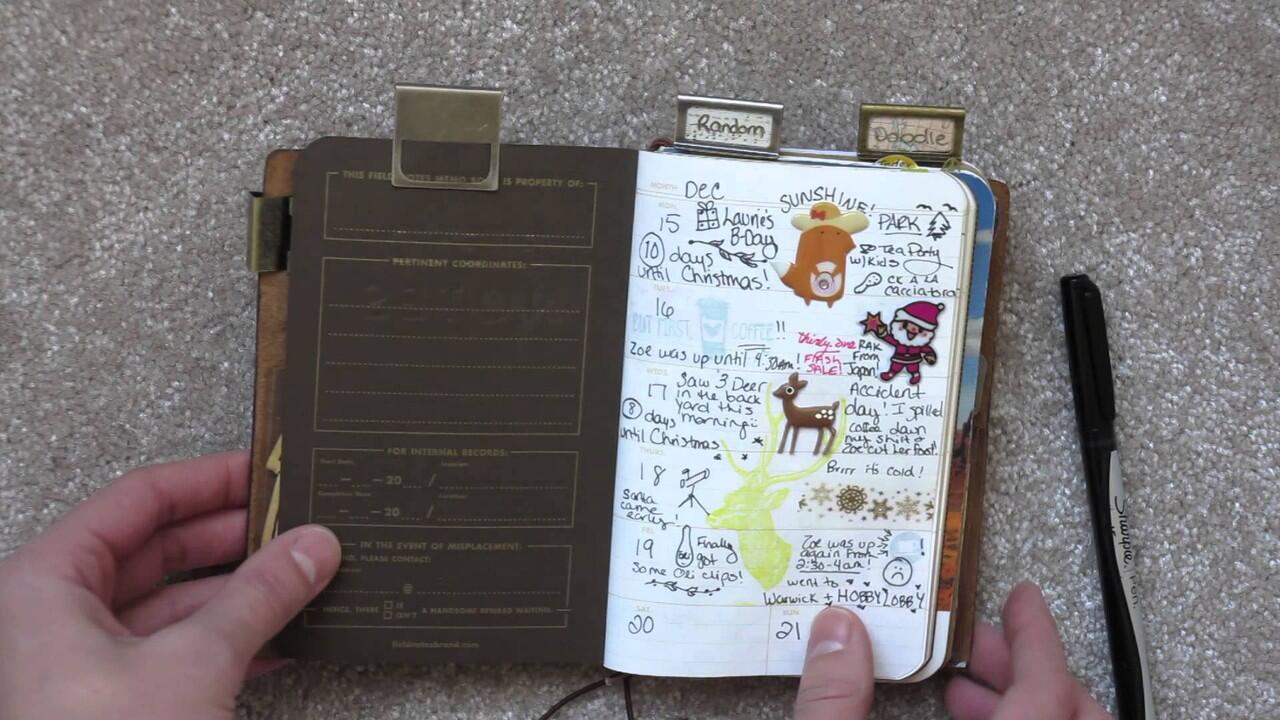 Random
Dalodie
THIS FIELD NOTES MEMO BOOK IS PROPERTY OF:
PERTINENT COORDINATES:
FOR INTERNAL RECORDS:
Start Date
Location
— — 20 /
Completion Date
Location
— — 20 /
IN THE EVENT OF MISPLACEMENT:
PLEASE CONTACT:
@
HENCE, THERE IS A HANDSOME REWARD WAITING.
ISN'T
fieldnotesbrand.com
MONTH: DEC
MON.
15 Laurie's
B-Day
10 days
until Christmas!
SUNSHINE!
PARK
Tea Party
w/Kids
CK A LA
Cacciatora
TUES.
16
BUT FIRST, COFFEE!!
Zoe was up until 4:30am!
thirty-one
FLASH
SALE!
RAK
From
Japan!
WEDS.
17 Saw 3 Deer
in the back
yard this
morning
8 days
until Christmas
Accident
day! I spilled
coffee down
my shirt &
Zoe cut her foot.
THURS.
18
Santa
came
early
Brrr it's cold!
FRI.
19
Finally
got
Some Oli clips!
Zoe was up
again from
2:30-4am!
went to
Warwick + HOBBY LOBBY
SAT.
20
SUN.
21
Sharpie Pen